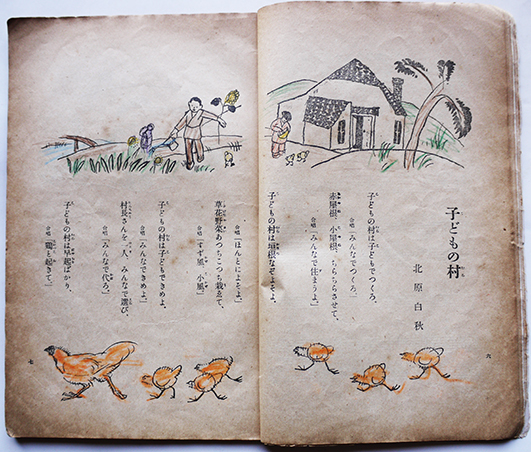 子どもの村
北原白秋
子どもの村は子どもでつくろ。
合唱「みんなでつくろ。」
赤屋根、小屋根、ちらちらさせて、
合唱「みんなで住まうよ。」
子どもの村は垣根なぞよそよ。
六
合唱「ほんとによそよ。」
草花野菜あつちこつち栽ゑて、
合唱「すず風、小風。」
子どもの村は子どもできめよ。
合唱「みんなできめよ。」
村長さんを一人、みんなで選び、
合唱「みんなで代ろ。」
子どもの村は早起ばかり、
合唱「鶏と起きて。」
七